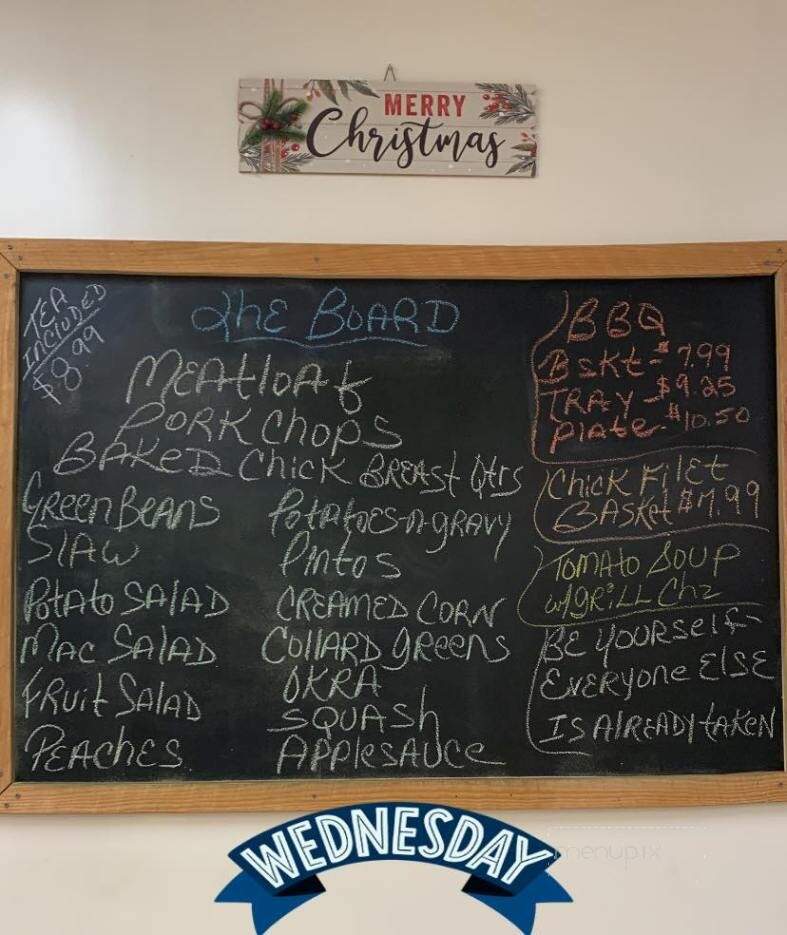 MERRY
Christmas
TEA
INCLUDED
$8.99
The BOARD
MEAtloAf
PORK Chops
BAKED Chick BREAST Qtrs
GREEN BEANS
SlAW
PotAto SALAD
MAC SALAD
FRuit SALAD
PEAChES
PotAtoes-n-gRAVy
Pintos
CREAMED CORN
COllARD gREENS
OKRA
SQUASh
ApplESAUCE
BBQ
BSKt- $7.99
TRAY- $9.25
PlAte- $10.50
ChicK FilEt
BASKet $7.99
TOMAto SOUP
w/gRiLL Chz
BE YOURSElf-
EVERyone ElSE
IS AlREADy tAKEN
WEDNESDAY
menupix